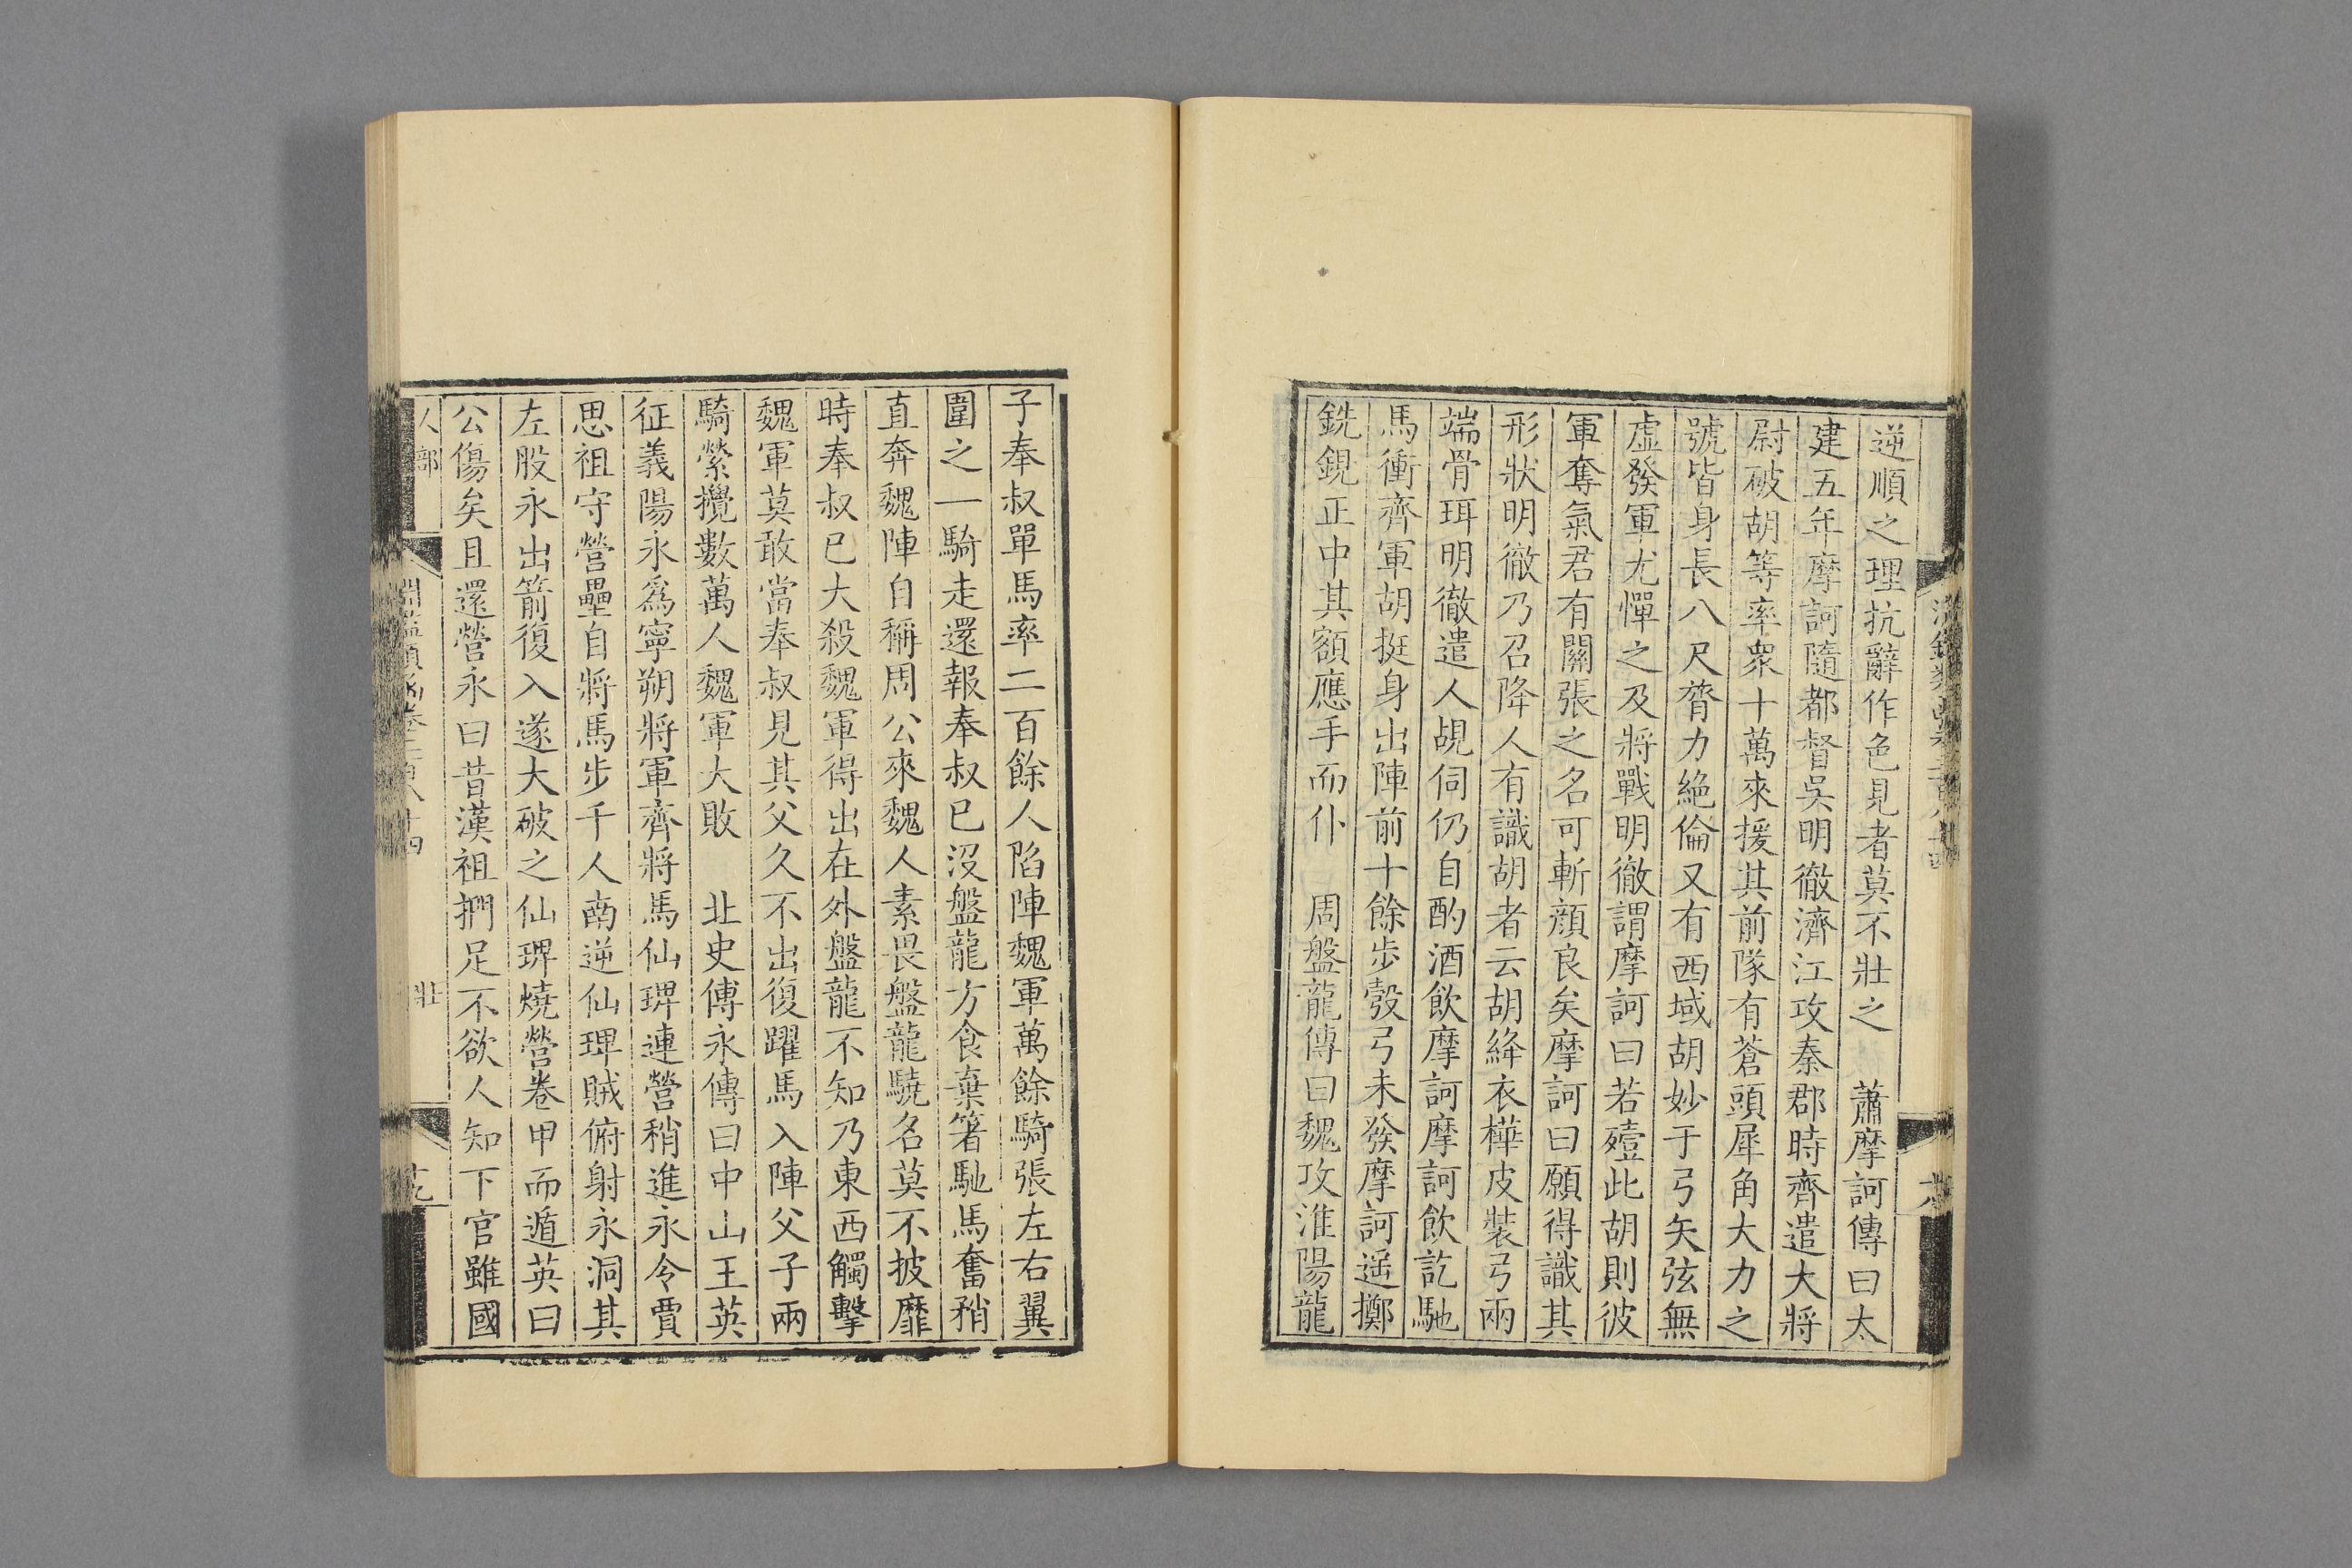 逆順之理抗辭作色見者莫不壯之　蕭摩訶傳曰太
建五年摩訶隨都督吳明徹濟江攻秦郡時齊遣大將
尉破胡等率衆十萬來援其前隊有蒼頭犀角大力之
號皆身長八尺膂力絶倫又有西域胡妙于弓矢弦無
虛發軍尤憚之及將戰明徹謂摩訶曰若殪此胡則彼
軍奪氣君有關張之名可斬顔良矣摩訶曰願得識其
形狀明徹乃召降人有識胡者云胡絳衣樺皮裝弓兩
端骨珥明徹遣人覘伺仍自酌酒飲摩訶摩訶飲訖馳
馬衝齊軍胡挺身出陣前十餘步彀弓未發摩訶遥擲
銑鋧正中其額應手而仆　周盤龍傳曰魏攻淮陽龍
子奉叔單馬率二百餘人陷陣魏軍萬餘騎張左右翼
圍之一騎走還報奉叔已沒盤龍方食棄箸馳馬奮矟
直奔魏陣自稱周公來魏人素畏盤龍驍名莫不披靡
時奉叔已大殺魏軍得出在外盤龍不知乃東西觸擊
魏軍莫敢當奉叔見其父久不出復躍馬入陣父子兩
騎縈攪數萬人魏軍大敗　北史傅永傳曰中山王英
征義陽永爲寧朔將軍齊將馬仙琕連營稍進永令賈
思祖守營壘自將馬步千人南逆仙琕賊俯射永洞其
左股永出箭復入遂大破之仙琕燒營卷甲而遁英曰
公傷矣且還營永曰昔漢祖捫足不欲人知下官雖國
人部
淵鑑類函卷二百八十四
壯